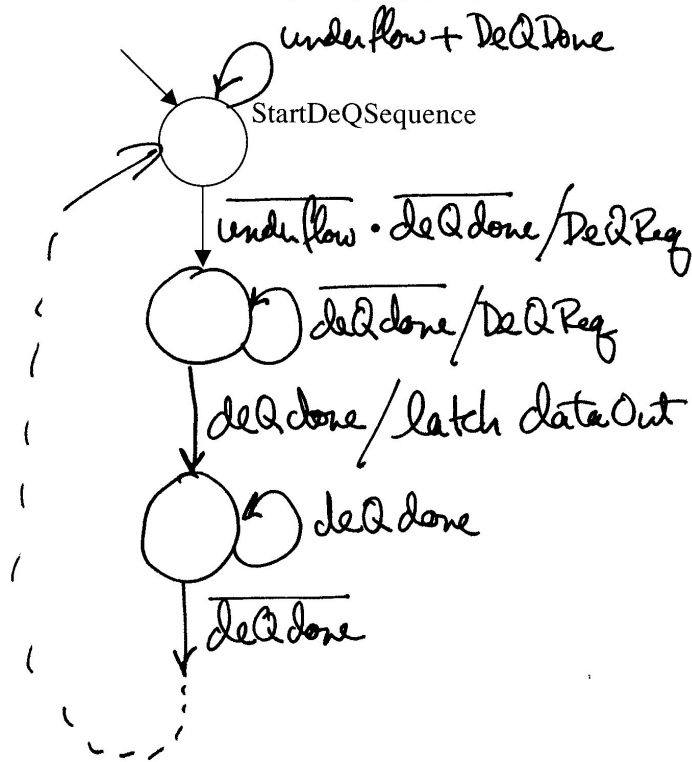 underflow + DeQDone
StartDeQSequence
underflow · deQdone / DeQReq
deQdone / DeQReq
deQdone / latch dataOut
deQdone
deQdone